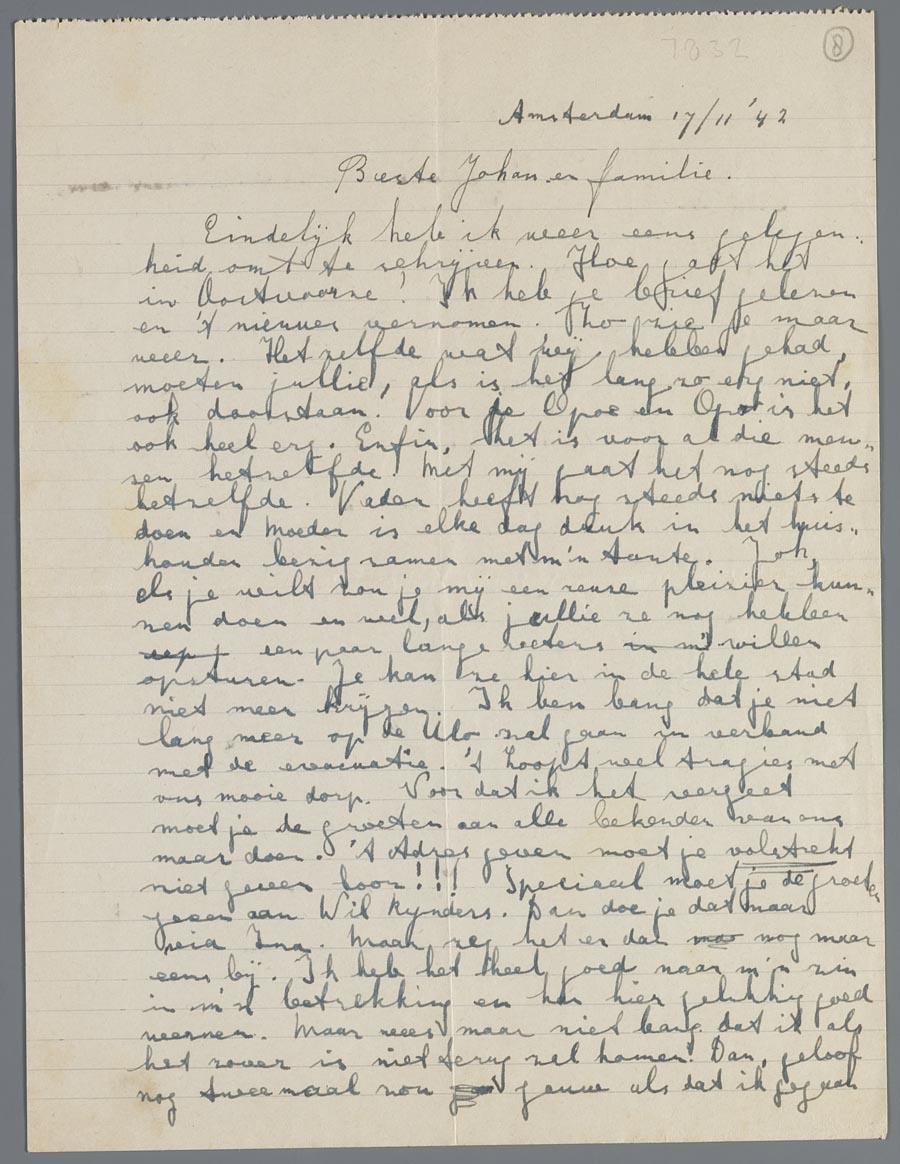 7832
8
Amsterdam 17/11 '42
Beste Johan en familie.
Eindelijk heb ik weer eens gelegen-
heid omt te schrijven. Hoe gaat het
in Oostvoorne! Ik heb je brief gelezen
en 't nieuws vernomen. Zo zie je maar
weer. Hetzelfde wat wij hebben gehad,
moeten jullie, als is het lang zo erg niet,
ook doorstaan. Voor je Opoe en Opa is het
ook heel erg. Enfin, het is voor al die men-
sen hetzelfde! Met mij gaat het nog steeds
hetzelfde. Vader heeft nog steeds niets te
doen en Moeder is elke dag druk in het huis-
houden bezig samen met m'n tante. Joh,
als je wilt zou je mij een reuze pleizier kun-
nen doen en wel, als jullie ze nog hebben
een paar lange veters in m' willen
opsturen. Je kan ze hier in de hele stad
niet meer krijgen. Ik ben bang dat je niet
lang meer op de Ulo zal gaan in verband
met de evacuatie. 't Loopt wel tragies met
ons mooie dorp. Voor dat ik het vergeet
moet je de groeten aan alle bekenden van ons
maar doen. 't Adres geven moet je volstrekt
niet geven hoor!!! Speciaal moet je de groeten
geven aan Wil Kynders. Dan doe je dat maar
via Ina. Maar zeg het er dan nog maar
eens bij. Ik heb het heel goed naar m'n zin
in m'n betrekking en kan hier gelukkig goed
wennen. Maar wees maar niet bang dat ik als
het zover is niet terug zal komen! Dan, geloof
nog tweemaal zou gauw als dat ik gegaan